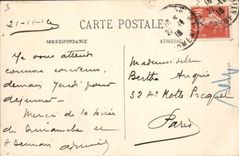 21-11-10
CARTE POSTALE
CORRESPONDANCE
ADRESSE
Je vous attends
comme convenu,
demain Jeudi pour
déjeuner.
Merci de la
Dimanche et
à demain
Mademoiselle
Berthe
32 Av. Motte Picquet
Paris